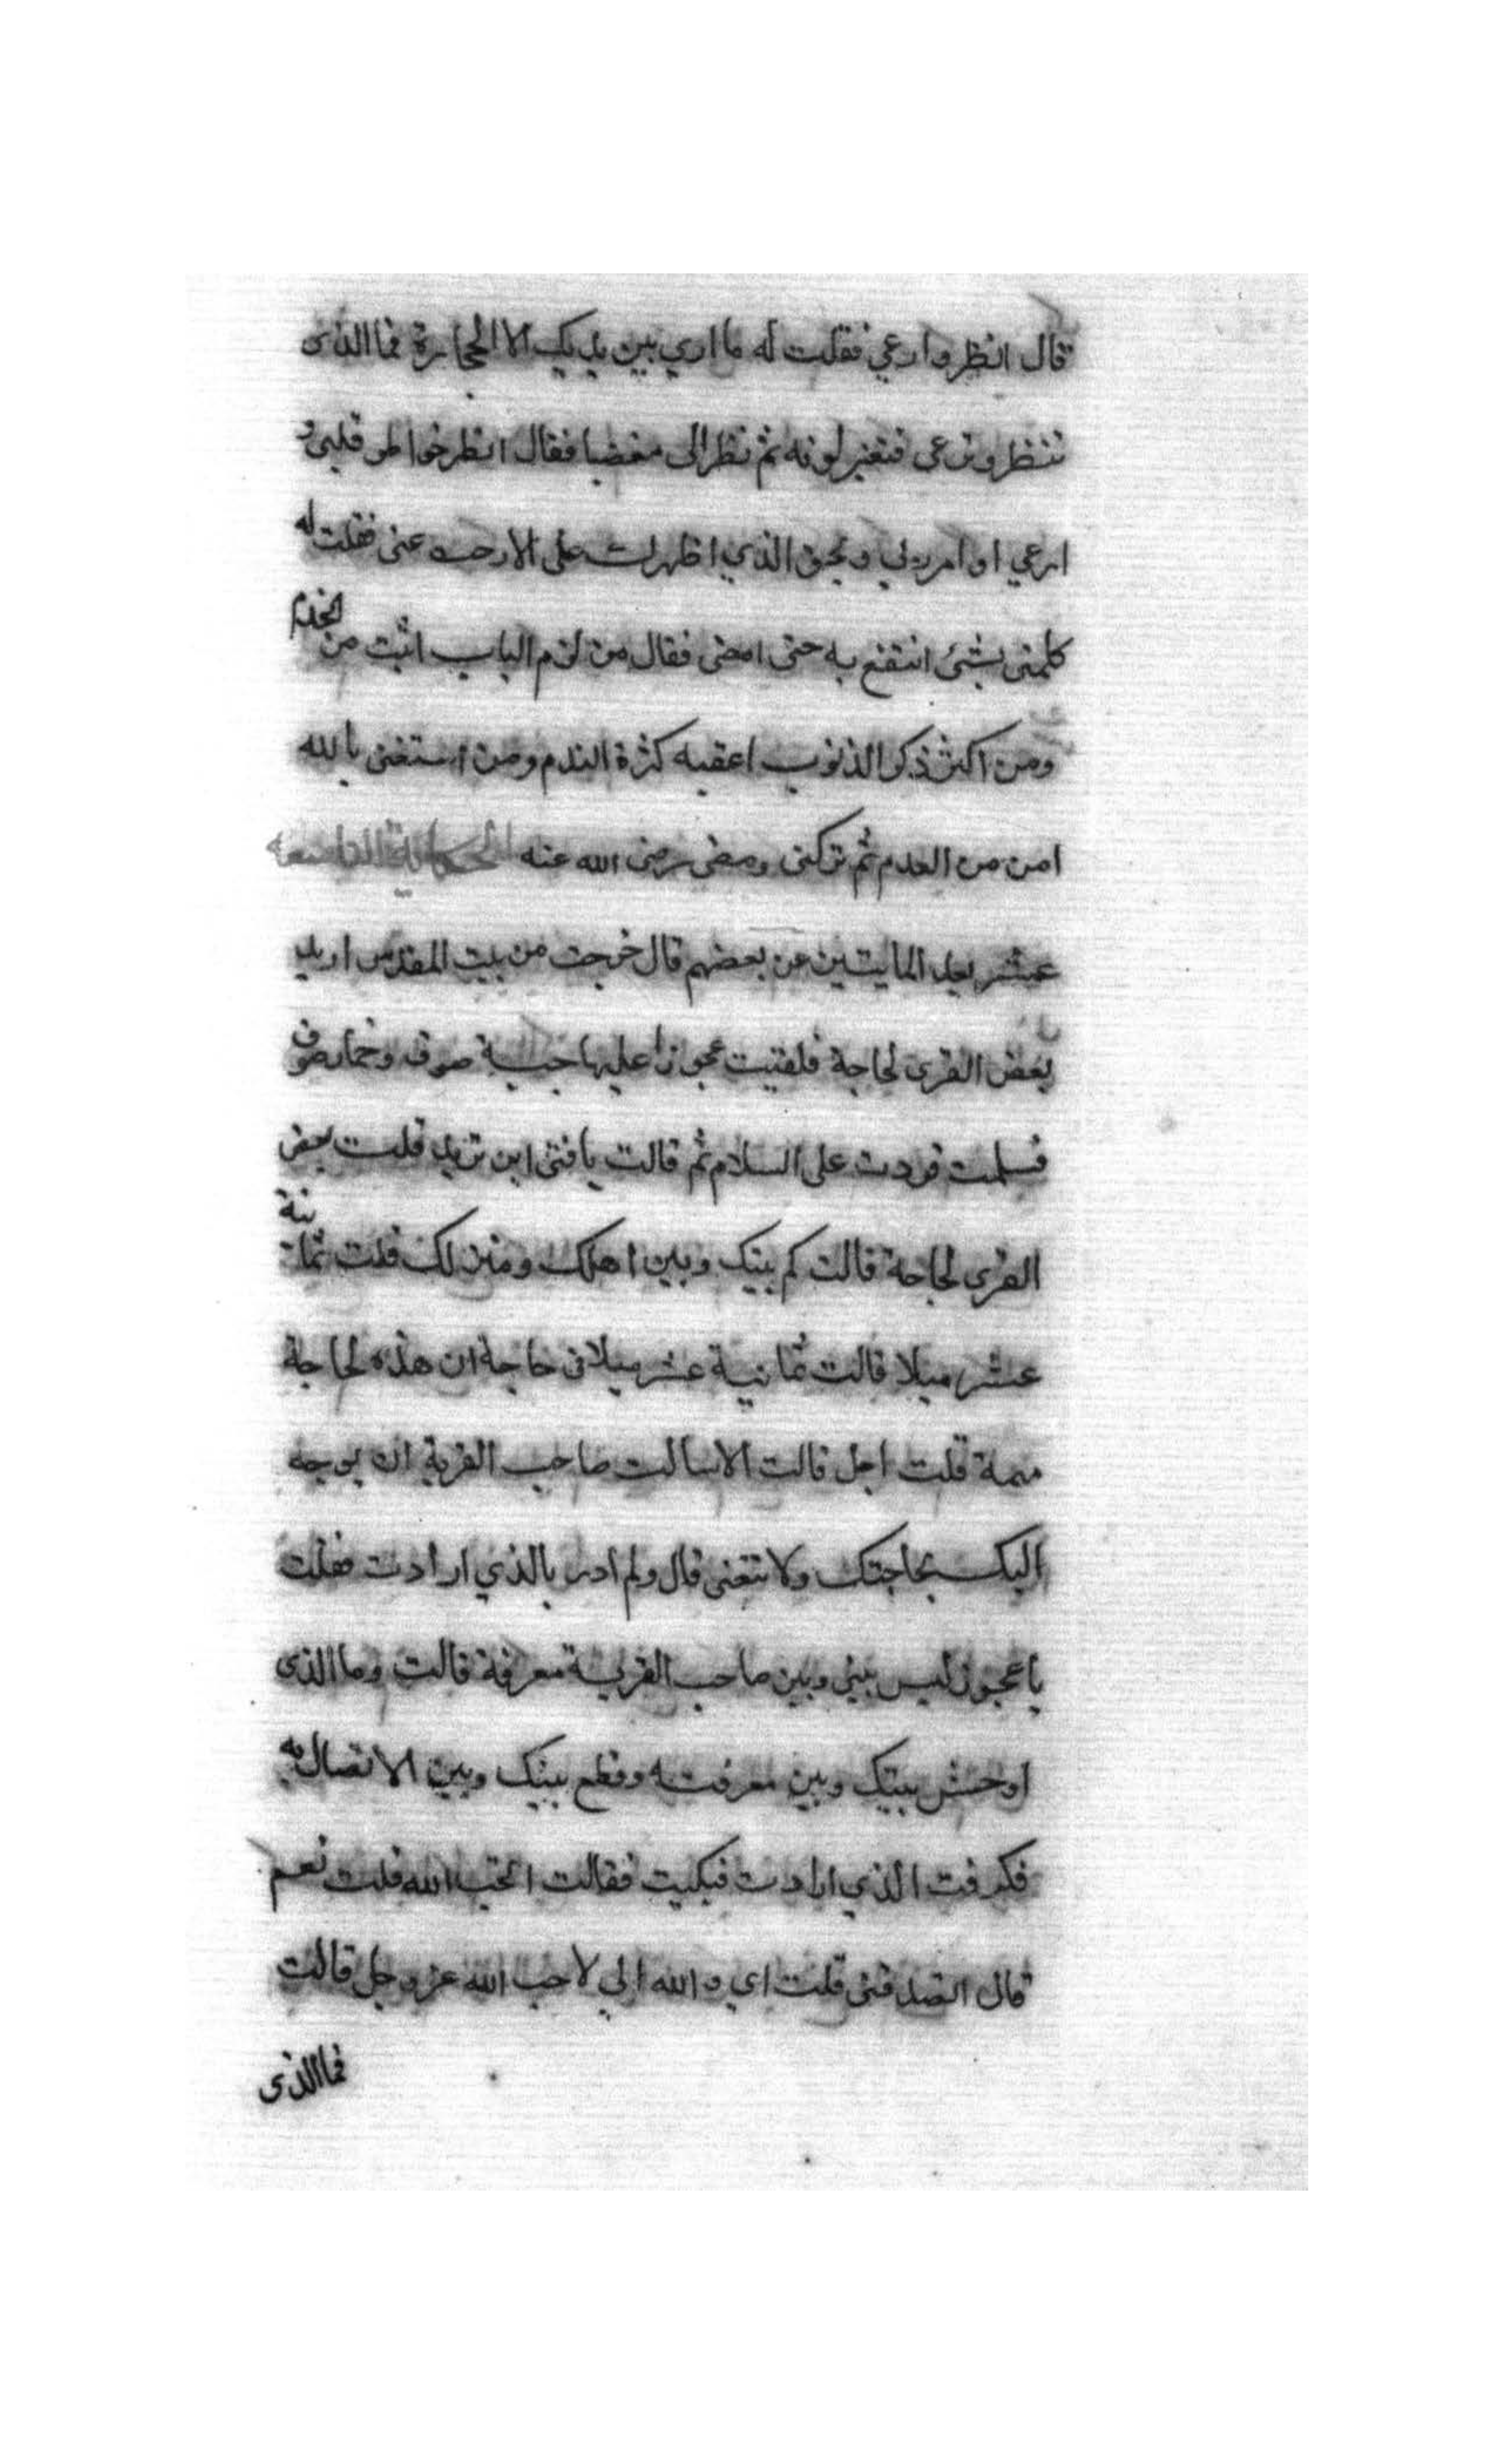 قال انظر وارعي فقلت له ما اري بين يديك الا الحجارة فما الذى
تنظر وترعى فتغير لونه ثم نظر الى مغضبا فقال انظر خواطر قلبى و
ارعي اوامر ربي وبحق الذي اظهرك على الا رحت عنى فقلت له
كلمنى بشئ انتفع به حتى امضى فقال من لزم الباب اثبت من الخدم
ومن اكثر ذكر الذنوب اعقبه كثرة الندم ومن استغنى بالله
امن من العدم ثم تركنى ومضى رضى الله عنه الحكاية التاسعه
عشر بعد المايتين عن بعضهم قال خرجت من بيت المقدس اريد
بعض القرى لحاجة فلقيت عجوزا عليها جبة صوف وخمار صوف
فسلمت فردت على السلام ثم قالت يا فتى اين تريد قلت بعض
القرى لحاجة قالت كم بينك وبين اهلك ومنزلك قلت ثمانية
عشر ميلا قالت ثمانية عشر ميلا فى حاجة ان هذه لحاجة
مهمة قلت اجل قالت الا سالت صاحب القرية ان يوجه
اليك بحاجتك ولا تتعنى قال ولم ادر بالذي ارادت فقلت
يا عجوز ليس بيني وبين صاحب القرية معرفة قالت وما الذى
اوحش بينك وبين معرفته وقطع بينك وبين الاتصال به
فكرفت الذي ارادت فبكيت فقالت اتحب الله قلت نعم
قال اتصدقنى قلت اي والله اني لاحب الله عز وجل قالت
فما الذى